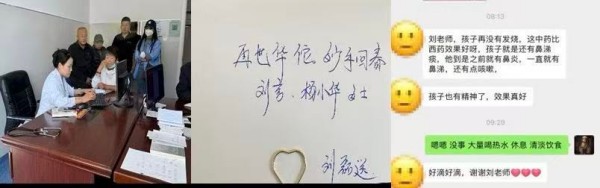 再世华佗 妙手回春
杨小华女士
08:13
刘老师，孩子再没有发烧，这中药比
西药效果好呀，孩子就是还有鼻涕
痰，他到是之前就有鼻炎，一直就有
鼻涕，还有点咳嗽，
孩子也有精神了，效果真好
09:20
嗯嗯 没事 大量喝热水 休息 清淡饮食
好滴好滴，谢谢刘老师❤❤❤